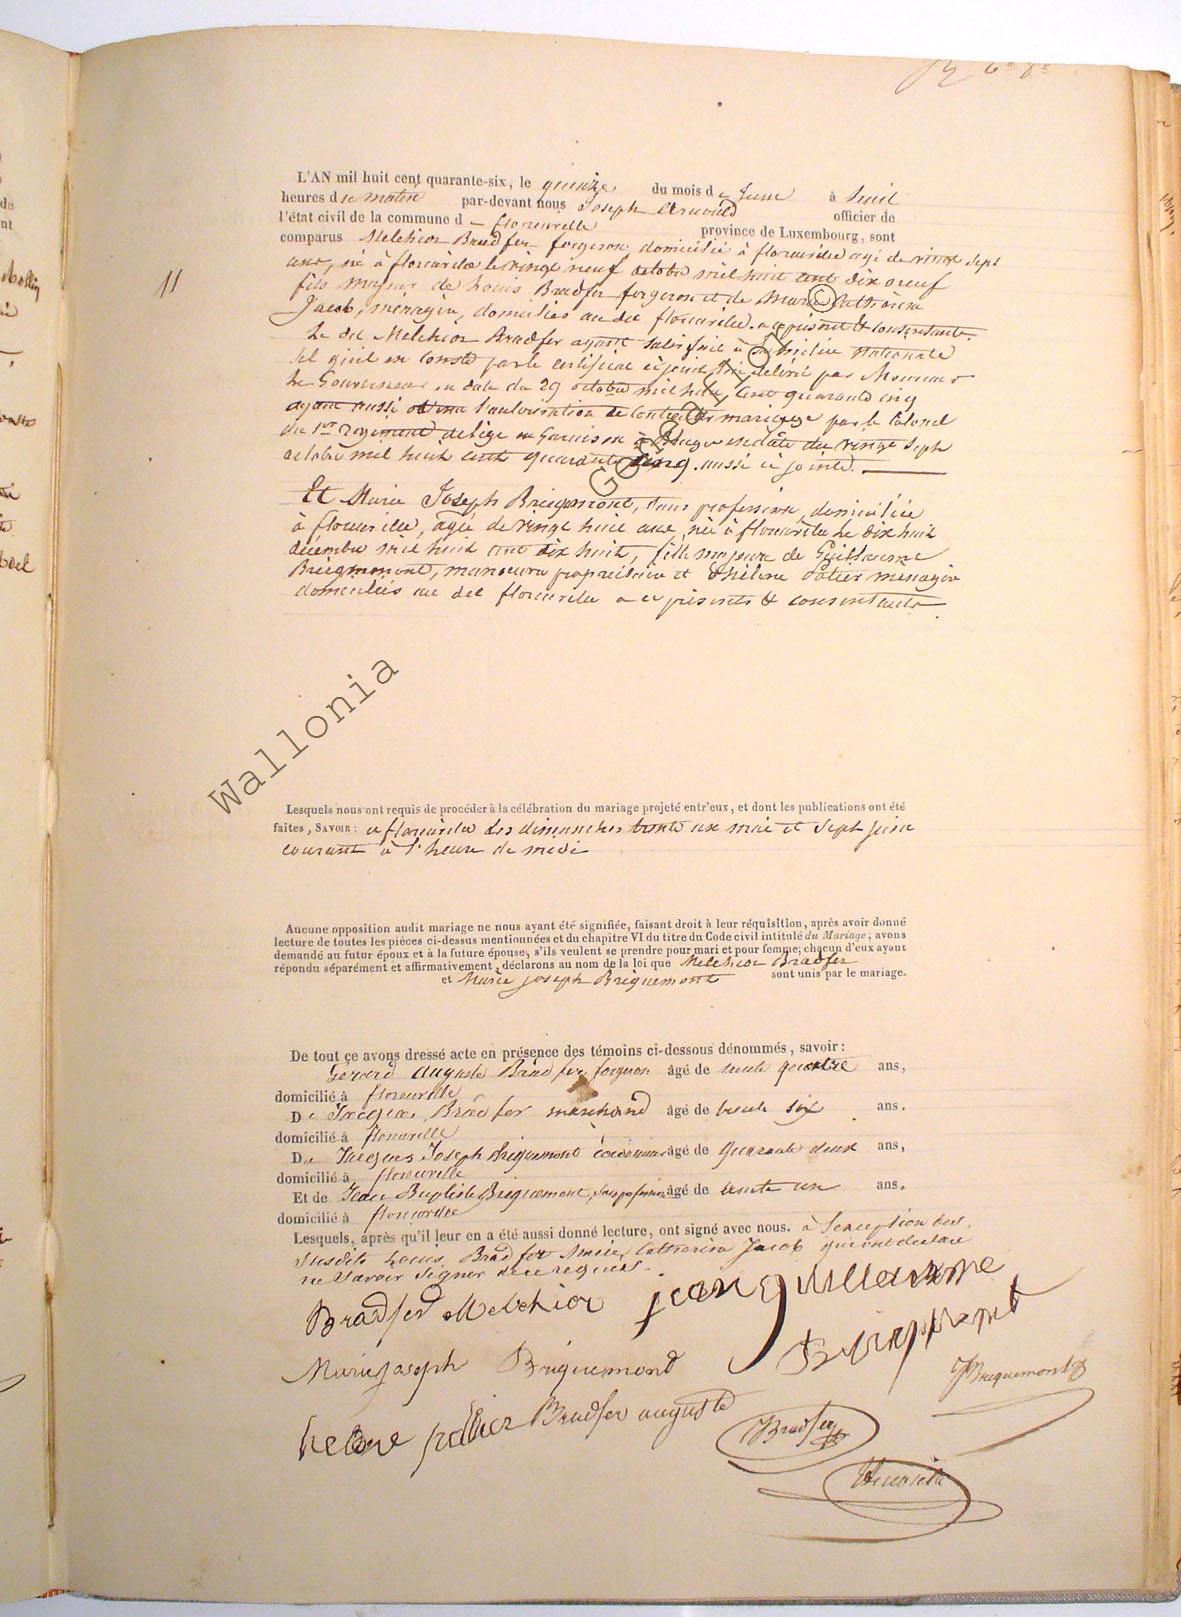 L'AN mil huit cent quarante-six, le quinze du mois de Juin à huit
heures du matin par-devant nous Joseph Arnould officier de
l'état civil de la commune de florenville province de Luxembourg, sont
comparus Melchior Bradfer forgeron domicilié à florenville agé de vingt sept
ans, né à florenville le vingt neuf octobre mil huit cent dix neuf
11
fils majeur de Louis Bradfer forgeron et de Marie Catherine
Jacob, ménagère, domiciliés au dit florenville, a ce présent & consentants.
Le dit Melchior Bradfer ayant satisfait à la milice nationale
tel qu'il en conste par le certificat ci joint délivré par Monsieur
Le Gouverneur en date du 29 octobre mil huit cent quarante cinq
ayant aussi obtenu l'autorisation de contracter mariage par le Colonel
du 1er regiment de en Garnison à en date du vingt sept
octobre mil huit cent quarante cinq, aussi ci jointe.
Et Marie Joseph Briquemont, sans profession, domiciliée
à florenville, agée de vingt huit ans, née à florenville le dix huit
décembre mil huit cent dix huit, fille majeure de Guillaume
Briquemont, manoeuvre propriétaire et d'hélène Potier ménagère
domiciliés au dit florenville a ce présents & consentants.
Wallonia
© Genealogy
Lesquels nous ont requis de procéder à la célébration du mariage projeté entr'eux, et dont les publications ont été
faites, SAVOIR: a florenville les dimanches trente un mai et sept juin
courant à l'heure de midi
Aucune opposition audit mariage ne nous ayant été signifiée, faisant droit à leur réquisition, après avoir donné
lecture de toutes les pièces ci-dessus mentionnées et du chapitre VI du titre du Code civil intitulé du Mariage; avons
demandé au futur époux et à la future épouse, s'ils veulent se prendre pour mari et pour femme; chacun d'eux ayant
répondu séparément et affirmativement, déclarons au nom de la loi que Melchior Bradfer
et Marie joseph Briquemont sont unis par le mariage.
De tout ce avons dressé acte en présence des témoins ci-dessous dénommés, savoir:
Gérard auguste Bradfer forgeron âgé de trente quatre ans,
domicilié à florenville
De Jacques Bradfer marchand âgé de trente six ans.
domicilié à florenville
De Jacques Joseph Briquemont cordonnier âgé de quarante deux ans,
domicilié à florenville
Et de Jean Baptiste Briquemont, sans profession âgé de trente un ans.
domicilié à florenville
Lesquels, après qu'il leur en a été aussi donné lecture, ont signé avec nous. à l'exception des
susdits Louis Bradfer & Marie Catherine Jacob qui ont déclaré
ne savoir signer de ce requis.
Bradfer Melchior jean guillaumme
Briqmont
Marie joseph Briquemont
JJBriquemont
helene potier Bradfer auguste
Bradfer